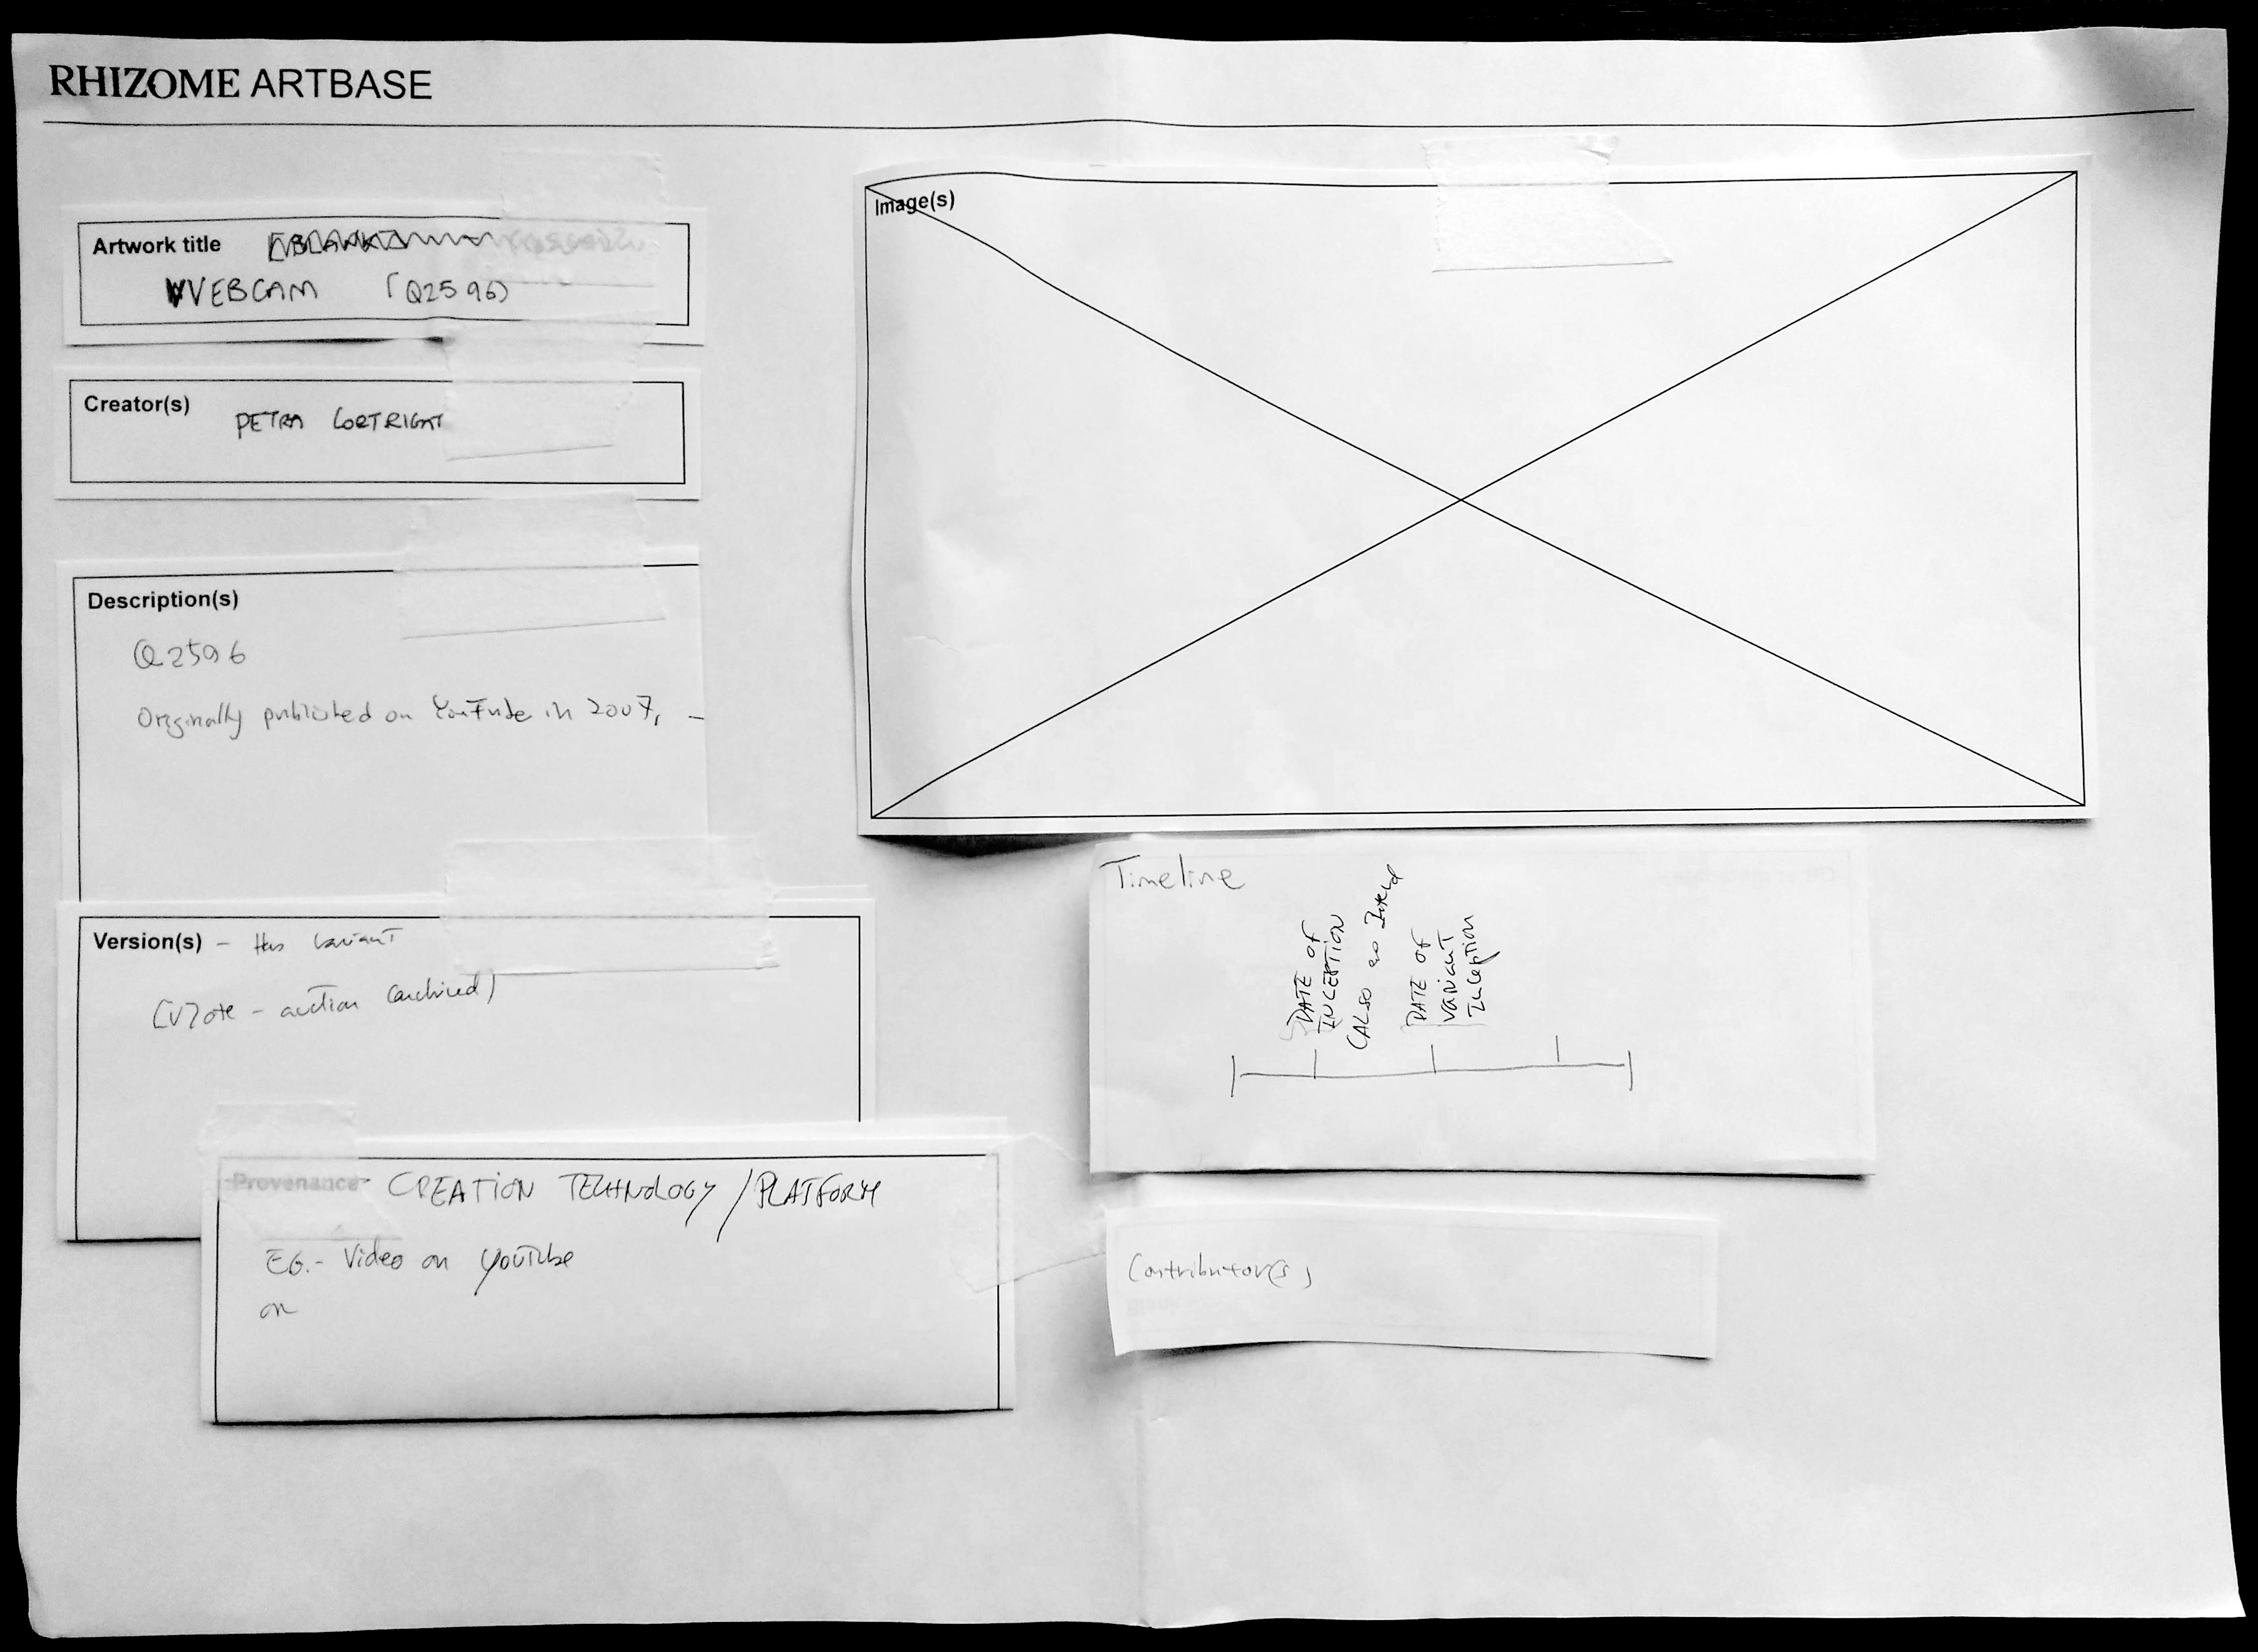 RHIZOME ARTBASE
Artwork title [BLANK]
VVEBCAM (Q2596)
Creator(s)
PETRA CORTRIGHT
Description(s)
Q2596
Originally published on YouTube in 2007, -
Version(s) - Has variant
- auction (archived)
Provenance CREATION TECHNOLOGY / PLATFORM
EG.- Video on YouTube
on
Image(s)
Timeline
DATE OF
INCEPTION
(ALSO as
DATE OF
VARIANT
INCEPTION
Contributor(s)